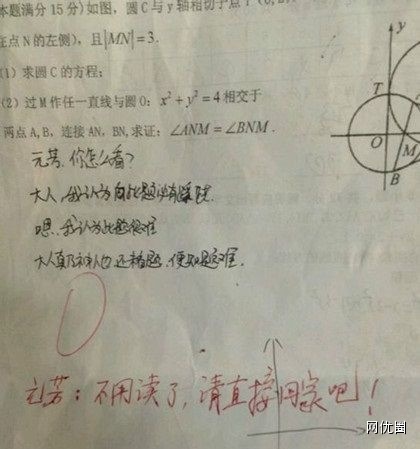 本题满分 15 分)如图，圆 C 与 y 轴相切于点 T (0, 2,
在点 N 的左侧)，且|MN|=3.
(1) 求圆 C 的方程；
(2) 过 M 作任一直线与圆 O: x²+y²=4 相交于
两点 A, B，连接 AN，BN, 求证：∠ANM=∠BNM .
y
T
O
M
B
元芳，你怎么看？
大人，我认为此题必有蹊跷
嗯，我认为此题很难
大人真乃神人也 还
题，便知是难.
0
元芳：不用读了，请直接回家吧！
网优图